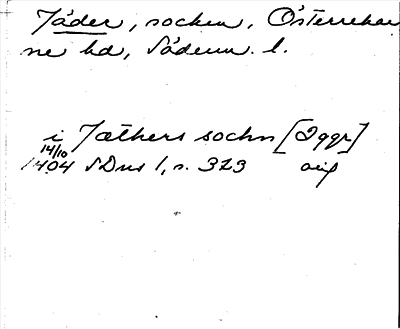 Jäder, socken, Österrekar
ne hd, Söderm. l.
i Jæthers sochn [2 ggr]
14/10
1404 SDns 1, s. 323 orig